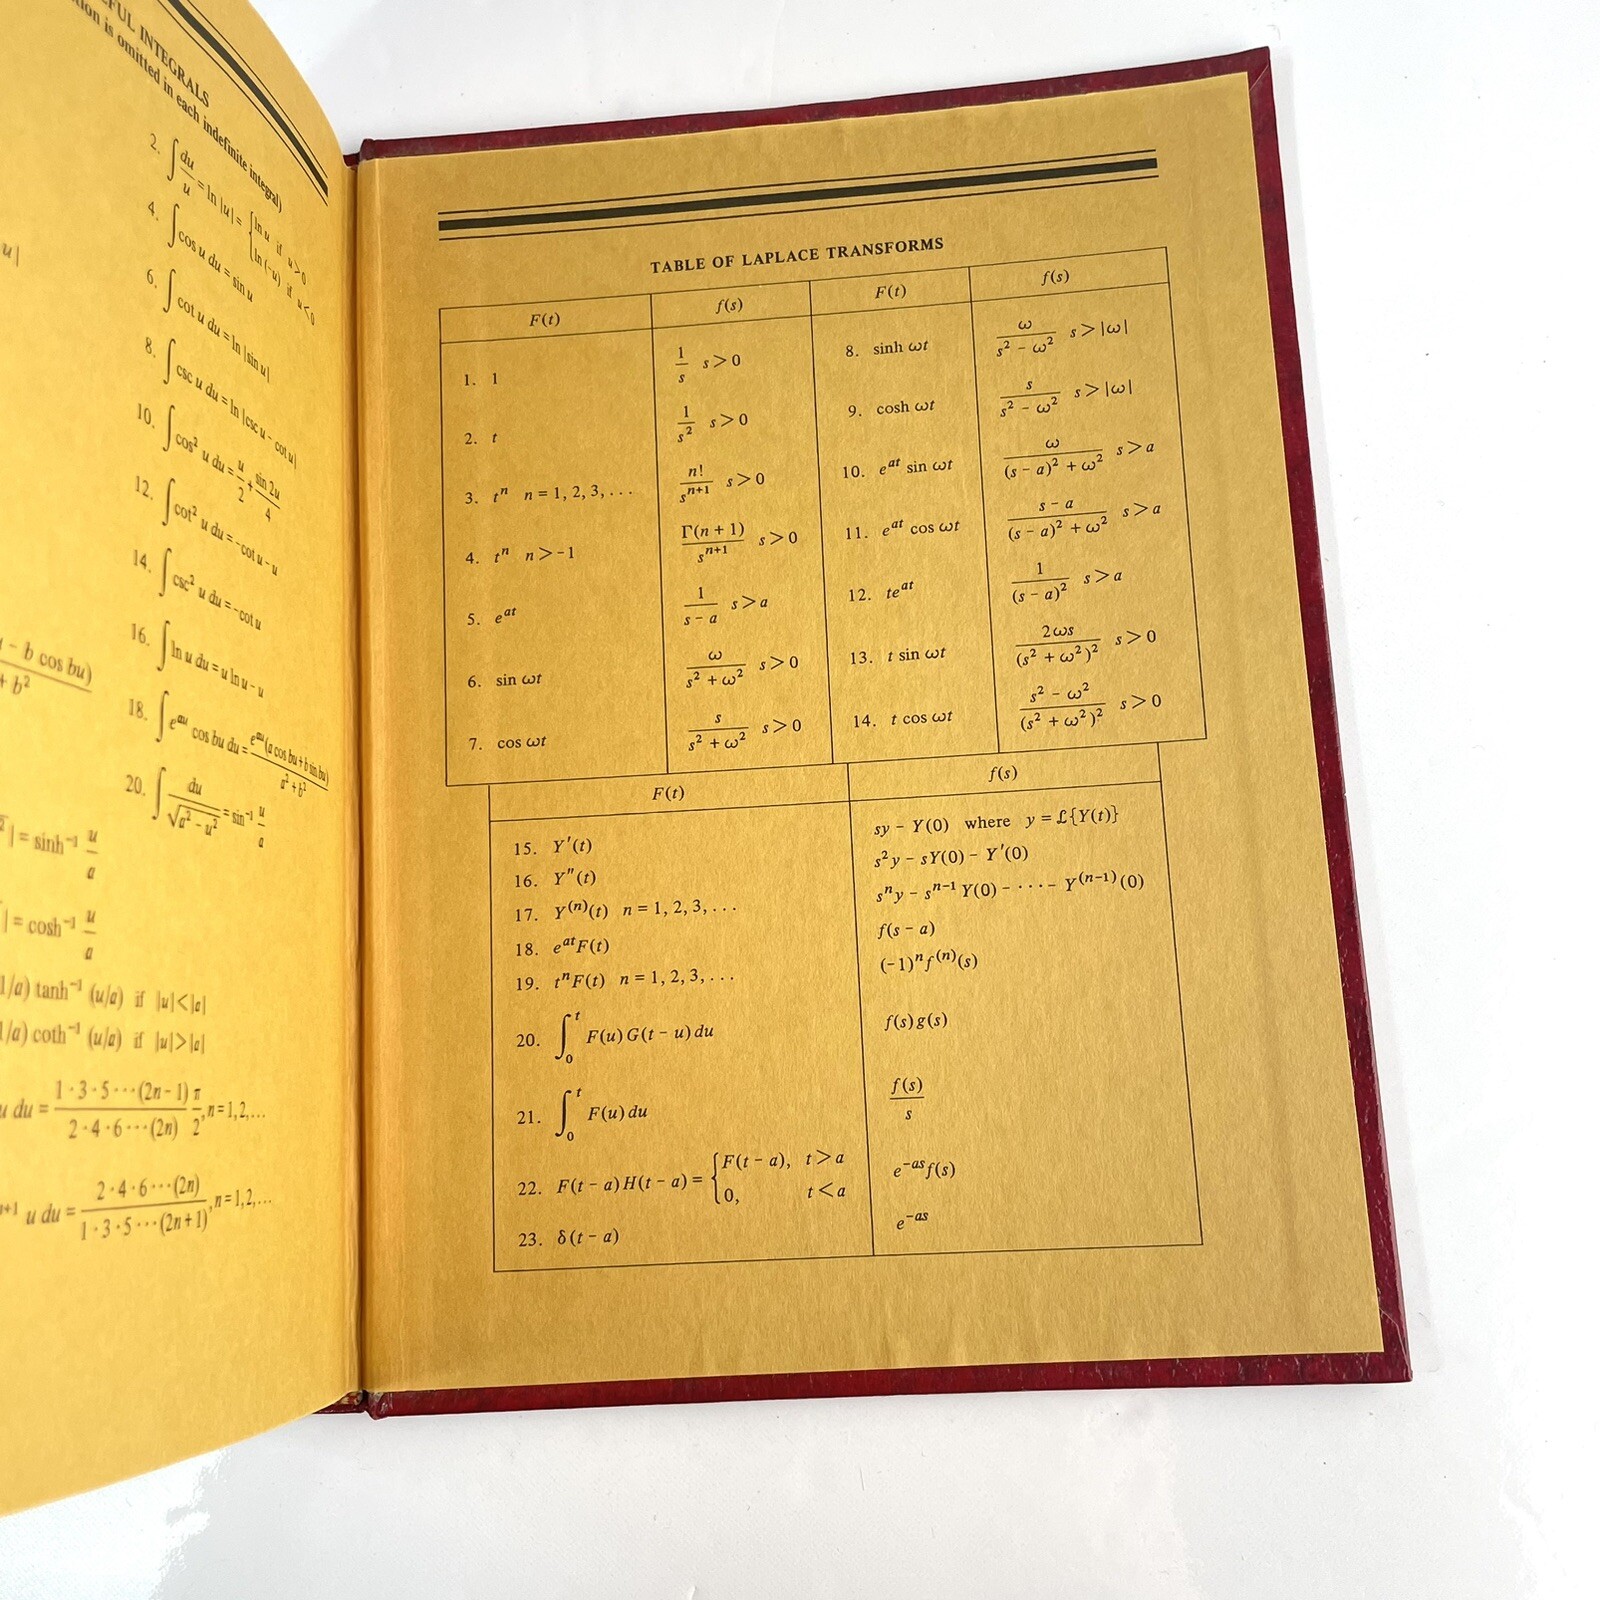 EFUL INTEGRALS
tion is omitted in each indefinite integral)
2. ∫ du/u = ln |u| = { ln u if u > 0
ln (-u) if u < 0
4. ∫ cos u du = sin u
6. ∫ cot u du = ln |sin u|
8. ∫ csc u du = ln |csc u - cot u|
10. ∫ cos² u du = u/2 + sin 2u/4
12. ∫ cot² u du = -cot u - u
14. ∫ csc² u du = -cot u
16. ∫ ln u du = u ln u - u
18. ∫ e^{au} cos bu du = e^{au}(a cos bu + b sin bu)/(a² + b²)
20. ∫ du/√(a² - u²) = sin⁻¹ u/a
u|
- b cos bu)
+ b²
| = sinh⁻¹ u/a
| = cosh⁻¹ u/a
1/a) tanh⁻¹ (u/a) if |u|<|a|
1/a) coth⁻¹ (u/a) if |u|>|a|
u du = 1·3·5···(2n-1)/2·4·6···(2n) π/2, n=1,2,...
n+1 u du = 2·4·6···(2n)/1·3·5···(2n+1), n=1,2,...
TABLE OF LAPLACE TRANSFORMS
F(t) f(s) F(t) f(s)
1. 1 1/s s>0 8. sinh ωt ω/(s² - ω²) s>|ω|
2. t 1/s² s>0 9. cosh ωt s/(s² - ω²) s>|ω|
3. tⁿ n = 1, 2, 3, ... n!/s^{n+1} s>0 10. e^{at} sin ωt ω/((s - a)² + ω²) s>a
4. tⁿ n>-1 Γ(n + 1)/s^{n+1} s>0 11. e^{at} cos ωt (s - a)/((s - a)² + ω²) s>a
5. e^{at} 1/(s - a) s>a 12. te^{at} 1/(s - a)² s>a
6. sin ωt ω/(s² + ω²) s>0 13. t sin ωt 2ωs/(s² + ω²)² s>0
7. cos ωt s/(s² + ω²) s>0 14. t cos ωt (s² - ω²)/(s² + ω²)² s>0
F(t) f(s)
15. Y′(t) sy - Y(0) where y = ℒ{Y(t)}
16. Y″(t) s²y - sY(0) - Y′(0)
17. Y^{(n)}(t) n = 1, 2, 3, ... sⁿy - s^{n-1}Y(0) - ··· - Y^{(n-1)}(0)
18. e^{at}F(t) f(s - a)
19. tⁿF(t) n = 1, 2, 3, ... (-1)ⁿf^{(n)}(s)
20. ∫₀ᵗ F(u)G(t - u)du f(s)g(s)
21. ∫₀ᵗ F(u)du f(s)/s
22. F(t - a)H(t - a) = { F(t - a), t>a e^{-as}f(s)
0, t<a
23. δ(t - a) e^{-as}